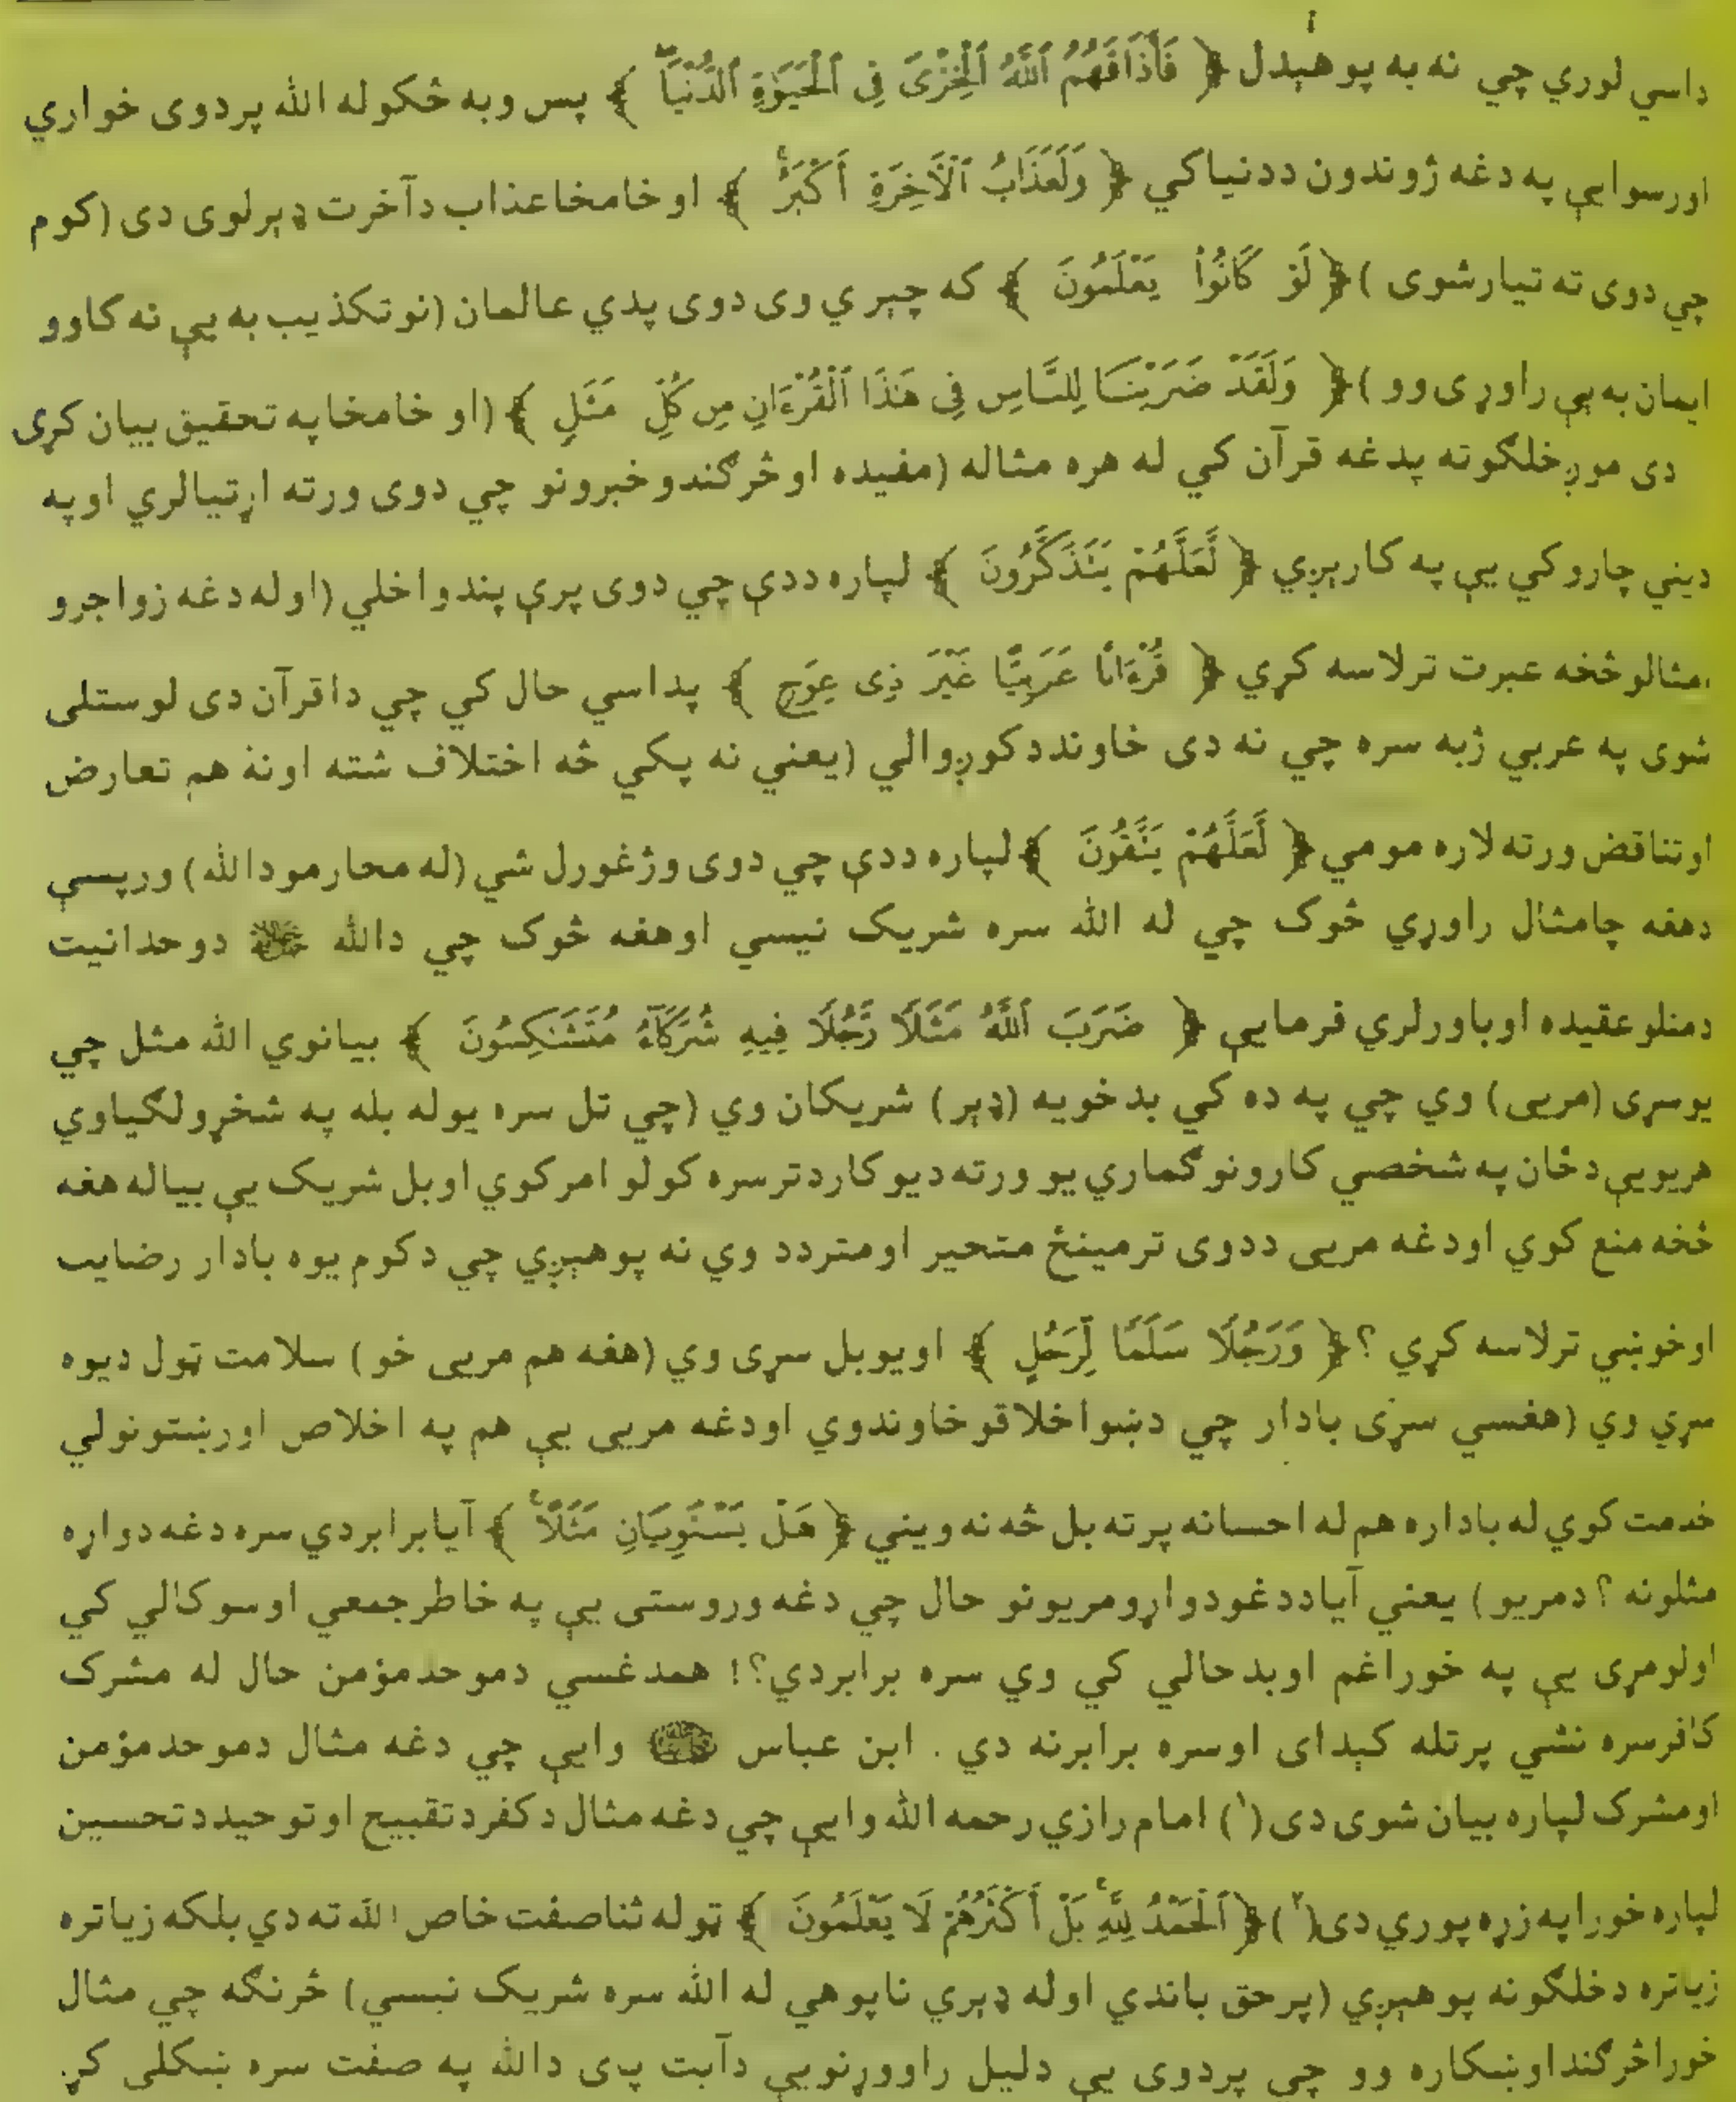 داسي لوري چي نه به پوهېدل ﴿ فَأَذَاقَهُمُ ٱللَّهُ ٱلْخِزْىَ فِى ٱلْحَيَوٰةِ ٱلدُّنْيَا ۖ ﴾ پس وبه څکوله الله پردوی خواري
اورسوايي په دغه ژوندون ددنياکي ﴿ وَلَعَذَابُ ٱلْأَخِرَةِ أَكْبَرُ ۚ ﴾ اوخامخاعذاب دآخرت ډېرلوی دی (کوم
چي دوی ته تيارشوی )﴿ لَوْ كَانُوا۟ يَعْلَمُونَ ﴾ که چېري وی دوی پدي عالمان (نوتکذيب به يې نه کاوو
ايمان به يې راوړی وو )﴿ وَلَقَدْ ضَرَبْنَا لِلنَّاسِ فِى هَـٰذَا ٱلْقُرْءَانِ مِن كُلِّ مَثَلٍ ﴾ (او خامخاپه تحقيق بيان کړی
دی موږخلګوته پدغه قرآن کي له هره مثاله (مفيده اوڅرګندوخبرونو چي دوی ورته اړتيالري اوپه
ديني چاروکي يې په کارېږي ﴿ لَّعَلَّهُمْ يَتَذَكَّرُونَ ﴾ لپاره ددې چي دوی پرې پندواخلي (اوله دغه زواجرو
،مثالوڅخه عبرت ترلاسه کړي ﴿ قُرْءَانًا عَرَبِيًّا غَيْرَ ذِى عِوَجٍ ﴾ پداسي حال کي چي داقرآن دی لوستلی
شوی په عربي ژبه سره چي نه دی خاونددکوږوالي (يعني نه پکي څه اختلاف شته اونۀ هم تعارض
اوتناقض ورته لاره مومي ﴿ لَّعَلَّهُمْ يَتَّقُونَ ﴾ لپاره ددې چي دوی وژغورل شي (له محارمودالله) ورپسې
دهغه چامثال راوړي څوک چي له الله سره شريک نيسي اوهغه څوک چي دالله ﷻ دوحدانيت
دمنلوعقيده اوباورلري فرمايې ﴿ ضَرَبَ ٱللَّهُ مَثَلًا رَّجُلًا فِيهِ شُرَكَآءُ مُتَشَـٰكِسُونَ ﴾ بيانوي الله مثل چي
يوسړی (مريی) وي چي په ده کي بدخويه (ډېر) شريکان وي (چي تل سره يوله بله په شخړولګياوي
هريويې دځان په شخصي کارونوګماري يو ورته ديوکاردترسره کولو امرکوي اوبل شريک يې بياله هغه
څخه منع کوي اودغه مريی ددوی ترمينځ متحير اومتردد وي نه پوهېږي چي دکوم يوه بادار رضايت
اوخوښي ترلاسه کړي ؟﴿ وَرَجُلًا سَلَمًا لِّرَجُلٍ ﴾ اويوبل سړی وي (هغه هم مريی خو) سلامت ټول ديوه
سړي وي (هغسي سړی بادار چي دښواخلاقوخاوندوي اودغه مريی يې هم په اخلاص اورښتونولي
خدمت کوي له باداره هم له احسانه پرته بل څه نه ويني ﴿ هَلْ يَسْتَوِيَانِ مَثَلًا ۚ ﴾ آيابرابردي سره دغه دواړه
مثلونه ؟ دمريو) يعني آياددغودواړومريونو حال چي دغه وروستی يې په خاطرجمعي اوسوکالي کي
اولومړی يې په خوراغم اوبدحالي کي وي سره برابردي؟! همدغسي دموحدمؤمن حال له مشرک
کافرسره نشي پرتله کېدای اوسره برابرنه دي . ابن عباس وايي چي دغه مثال دموحدمؤمن
اومشرک لپاره بيان شوی دی (۱) امام رازي رحمه الله وايي چي دغه مثال دکفردتقبيح اوتوحيددتحسين
لپاره خوراپه زړه پوري دی(۲)﴿ ٱلْحَمْدُ لِلَّهِ ۚ بَلْ أَكْثَرُهُمْ لَا يَعْلَمُونَ ﴾ ټوله ثناصفت خاص الله ته دي بلکه زياتره
زياتره دخلګونه پوهېږي (پرحق باندي اوله ډېري ناپوهي له الله سره شريک نبسي) څرنګه چي مثال
خوراڅرګنداوښکاره وو چي پردوی يې دليل راووړنويې دآيت پای دالله په صفت سره ښکلی کړ